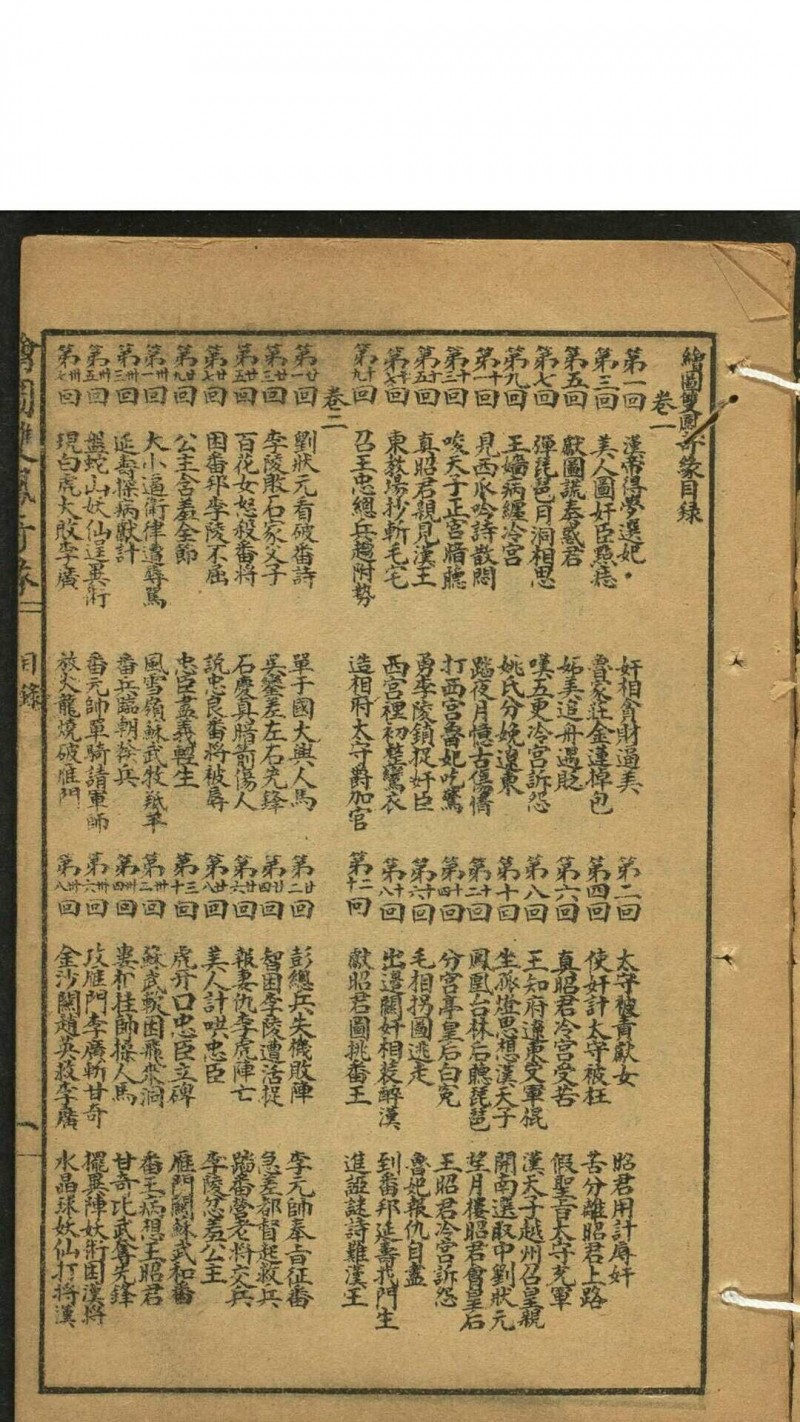 繪圖雙鳳奇緣目錄
卷一
第一回 漢帝得夢選妃 奸相貪財過美 第二回 太守被責獻女 昭君用計辱奸
第三回 美人圖奸臣點痣 魯家莊金蓮掉包 第四回 使奸計太守被枉 苦分離昭君上路
第五回 獻圖謊奏惑君 妬美追舟遇貶 第六回 真昭君冷宮受苦 假聖旨太守充軍
第七回 彈琵琶月洞相思 嘆五更冷宮訴怨 第八回 王知府遼東受軍棍 漢天子越州召皇親
第九回 王嬙病纏冷宮 姚氏分娩遼東 第十回 坐孤燈思想漢天子 開南選取中劉狀元
第十一回 見西水吟詩散悶 踏夜月憶古傷情 第十二回 鳳凰台林后聽琵琶 望月樓昭君會皇后
第十三回 唆天子正宮暗聽 打西宮魯妃吃驚 第十四回 分宮亭皇后白冤 王昭君冷宮訴怨
第十五回 真昭君親見漢王 勇李陵鎖捉奸臣 第十六回 毛相拐圖逃走 魯妃報仇自盡
第十七回 東教場抄斬毛宅 西宮裡初整鸞衣 第十八回 出邊關奸相裝醉漢 到番邦延壽拜門生
第十九回 召王忠總兵趨附勢 造相府太守爵加官 第二十回 獻昭君圖挑番王 進謎詩難漢王
卷二
第廿一回 劉狀元看破番詩 單于國大興人馬 第廿二回 彭總兵失機敗陣 李元帥奉旨征番
第廿三回 李陵敗石家父子 吳鑾差左右先鋒 第廿四回 智困李陵遭活捉 急差都督起救兵
第廿五回 百花女怒殺番將 石慶真暗箭傷人 第廿六回 報妻仇李虎陣亡 踹番營老將交兵
第廿七回 困番邦李陵不屈 說忠良番將被辱 第廿八回 美人計哄忠臣 李陵忿羞公主
第廿九回 公主含羞全節 忠臣盡義輕生 第三十回 虎牙口忠臣立碑 雁門關蘇武和番
第卅一回 大小逼衛律遭辱罵 風雪嶺蘇武牧羝羊 第卅二回 蘇武被困飛來洞 番王病想王昭君
第卅三回 延壽探病獻計 番兵臨朝操兵 第卅四回 婁相掛帥操人馬 甘奇比武奪先鋒
第卅五回 盤蛇山妖仙逞異術 番元帥單騎請軍師 第卅六回 攻雁門李廣斬甘奇 擺異陣妖術困漢將
第卅七回 現白虎大敗李廣 放火龍燒破雁門 第卅八回 金沙關趙英救李廣 水晶球妖仙打將漢
目錄
一